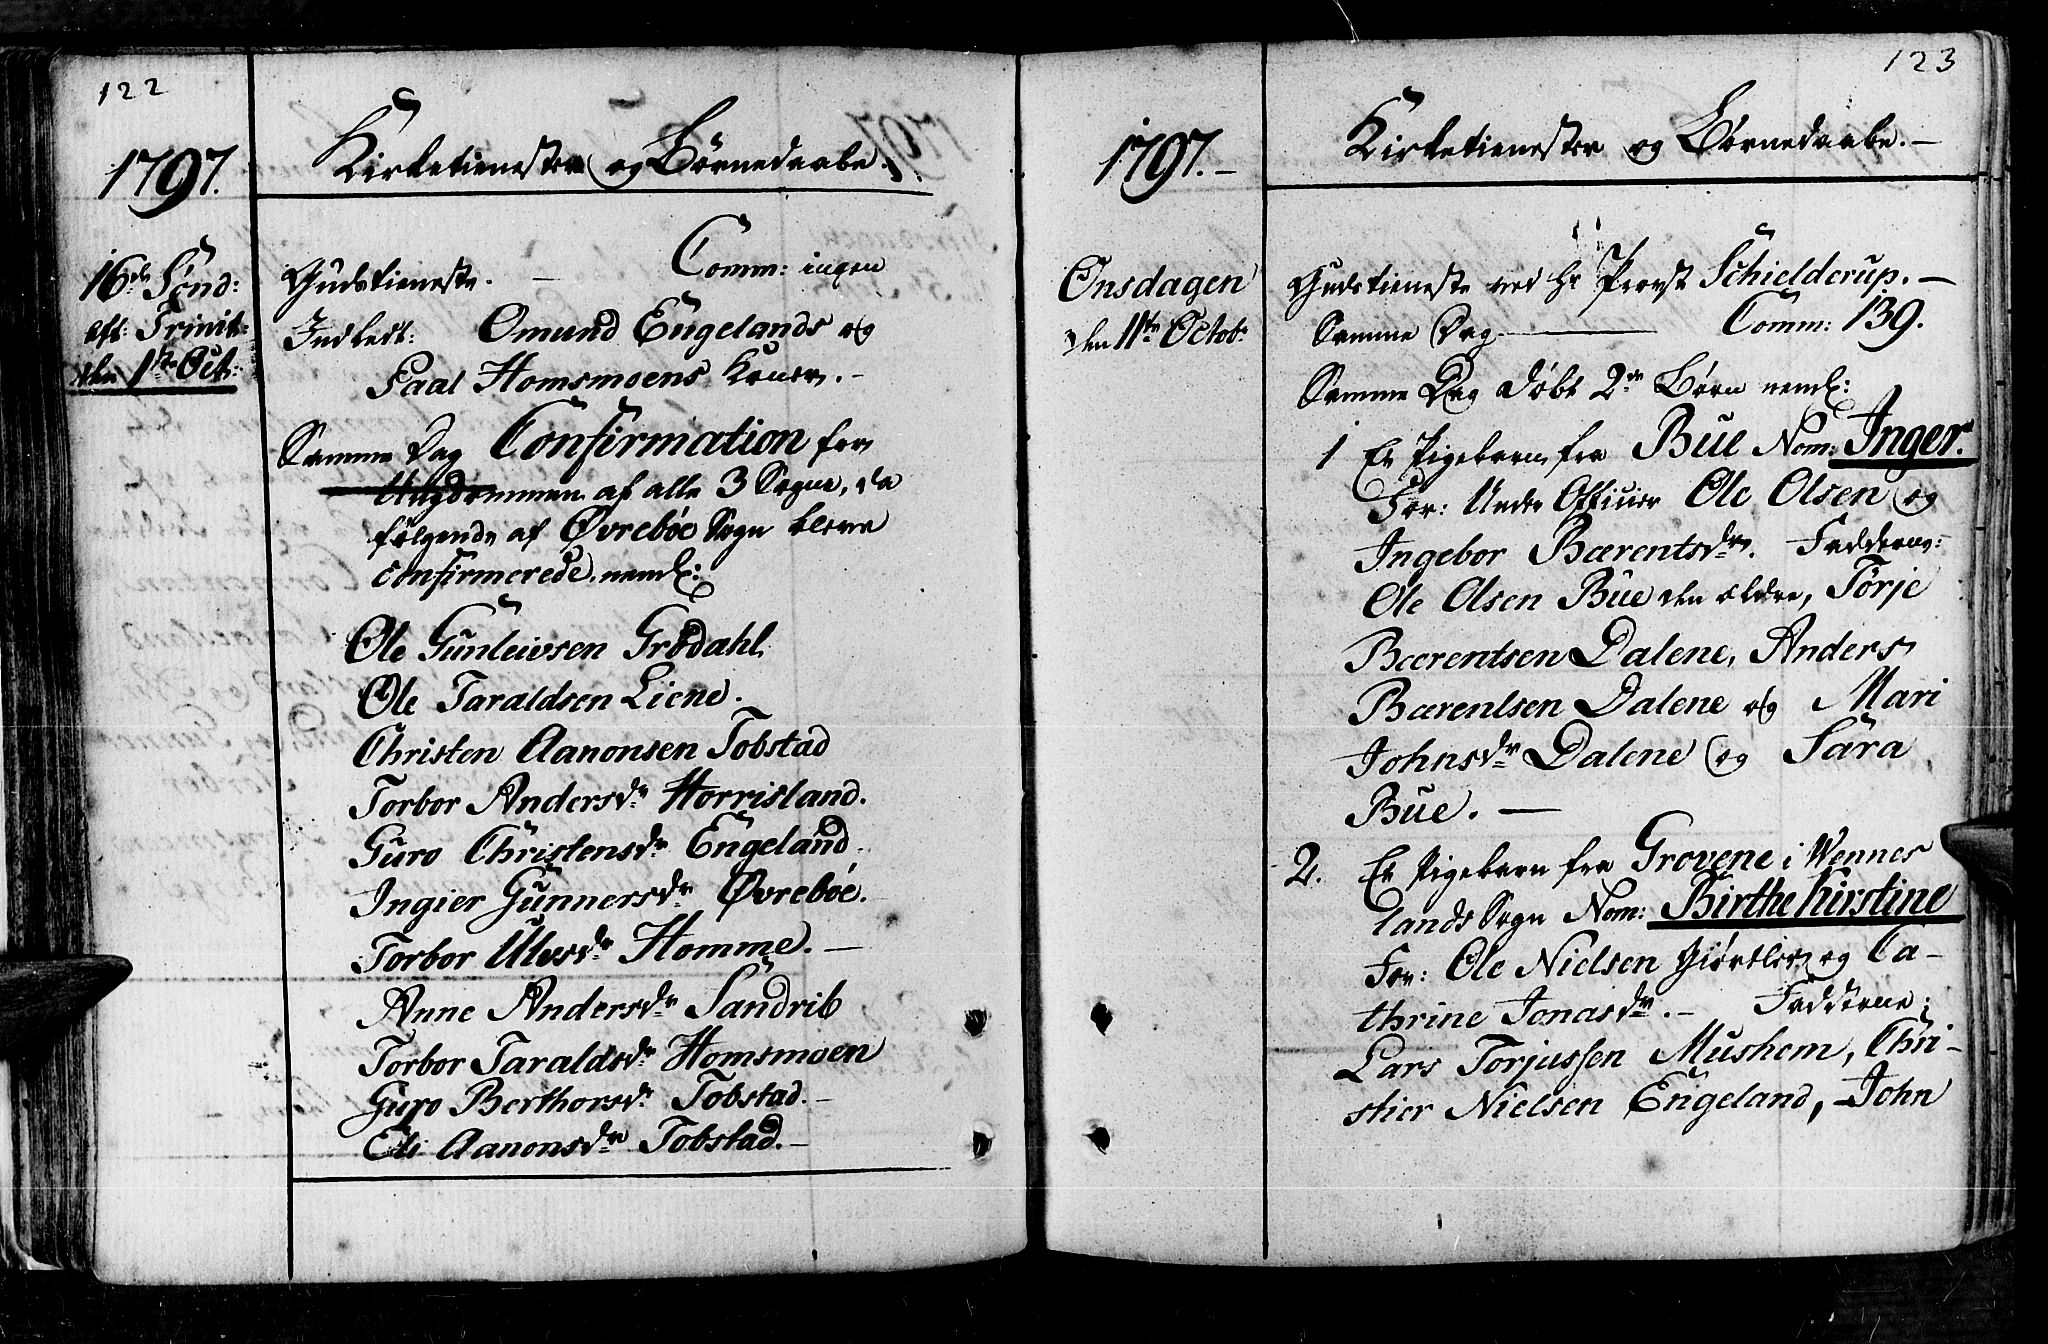 122
1797.
Kirketienester og Børnedaabe.
16de Sønd:
aft: Trinit:
den 1ste Oct:
Gudstieneste. — Comm: ingen
Indledt: Omund Engelands og
Paal Homsmoens Koner. —
Samme Dag Confirmation for
Ungdommen af alle 3 Sogne, da
følgende af Øvrebøe Sogn bleve
confirmerede, neml:
Ole Gunleivsen Grødahl
Ole Taraldsen Liene.
Christen Aanonsen Tobstad
Torbor Andersdr Horrisland.
Guro Christensdr Engeland.
Ingier Gunnersdr Øvrebøe.
Torbor Ulvsdr Homme. —
Anne Andersdr Sandrib
Torbor Taraldsdr Homsmoen
Guro Berthorsdr Tobstad. —
Eli Aanonsdr Tobstad. —
123
1797. —
Kirketienester og Børnedaabe. —
Onsdagen
den 11te Octobr
Gudstieneste ved Hr Provst Schielderup. —
Samme Dag — Comm: 139.
Samme Dag døbt 2de Børn neml:
1 Et Pigebarn fra Bue Nom: Inger.
For: Under Officier Ole Olsen og
Ingebor Bærentsdr. Fadderne:
Ole Olsen Bue den ældre, Tørje
Bærentsen Dalene, Anders
Bærentsen Dalene og Mari
Johnsdr Dalene og Sara
Bue. —
2. Et Pigebarn fra Grovene i Wennes
lands Sogn Nom: Birthe Kirstine
For: Ole Nielsen Giørtler og Ca-
thrine Jonasdr. — Fadderne:
Lars Torjussen Mushom, Chri-
stier Nielsen Engeland, John